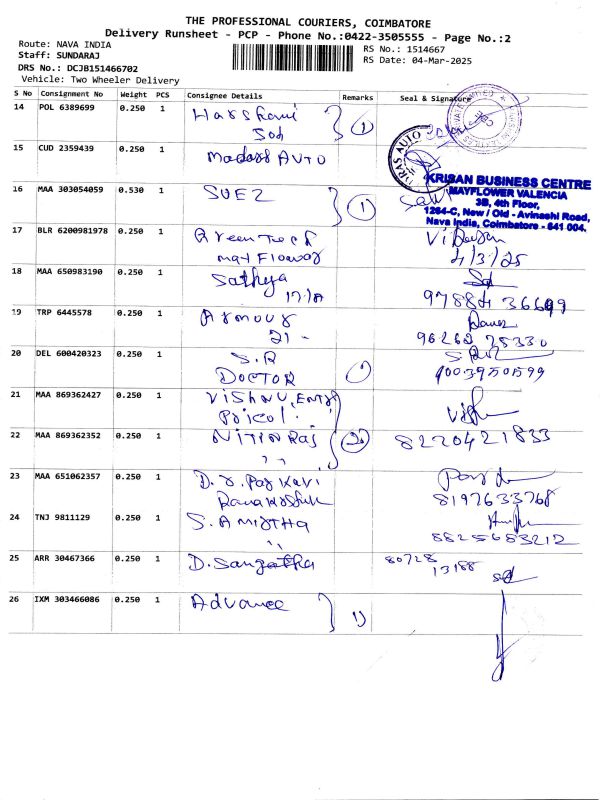 THE PROFESSIONAL COURIERS, COIMBATORE
Delivery Runsheet - PCP - Phone No.:0422-3505555 - Page No.:2
Route: NAVA INDIA
Staff: SUNDARAJ
DRS No.: DCJB151466702
Vehicle: Two Wheeler Delivery
RS No.: 1514667
RS Date: 04-Mar-2025
S No Consignment No Weight PCS Consignee Details Remarks Seal & Signature
14 POL 6389699 0.250 1
15 CUD 2359439 0.250 1 Madras AUTO
KRISAN BUSINESS CENTRE
MAYFLOWER VALENCIA
3B, 4th Floor,
1264-C, New / Old - Avinashi Road,
Nava India, Coimbatore - 641 004.
16 MAA 303054059 0.530 1 SUEZ 1
17 BLR 6200981978 0.250 1
may Flower 4/3/25
18 MAA 650983190 0.250 1 Sathya
19 TRP 6445578 0.250 1 Armour
21 -
20 DEL 600420323 0.250 1 S.R
DOCTOR
21 MAA 869362427 0.250 1 VISHNU, ENTR
Pricol.
22 MAA 869362352 0.250 1 NITIN RAJ 2 8220421833
,,
23 MAA 651062357 0.250 1
8197633768
24 TNJ 9811129 0.250 1 S. AMIRTHA
,, 8825683212
25 ARR 30467366 0.250 1 D. Sangetha 80728
13188
26 IXM 303466086 0.250 1 Advance 1)